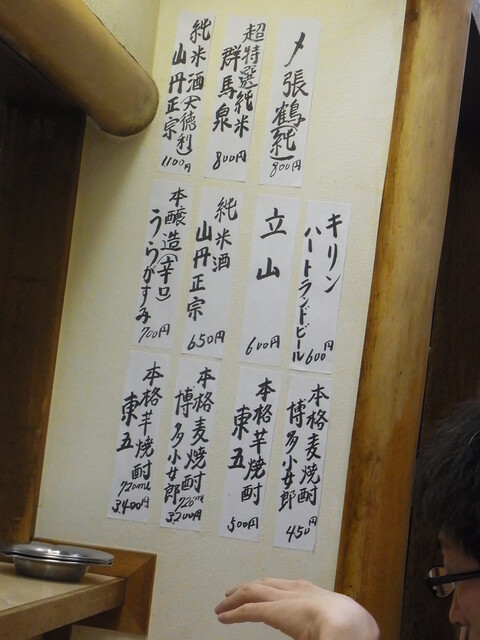 〆張鶴(純)
800円
超特選純米
群馬泉
800円
純米酒(大徳利)
山丹正宗
1100円
キリン
ハートランドビール
600円
立山
600円
純米酒
山丹正宗
650円
本醸造(辛口)
うらがすみ
700円
本格麦焼酎
博多小女郎
450円
本格芋焼酎
東五
500円
本格麦焼酎
博多小女郎
720ml
3,200円
本格芋焼酎
東五
720ml
3,400円